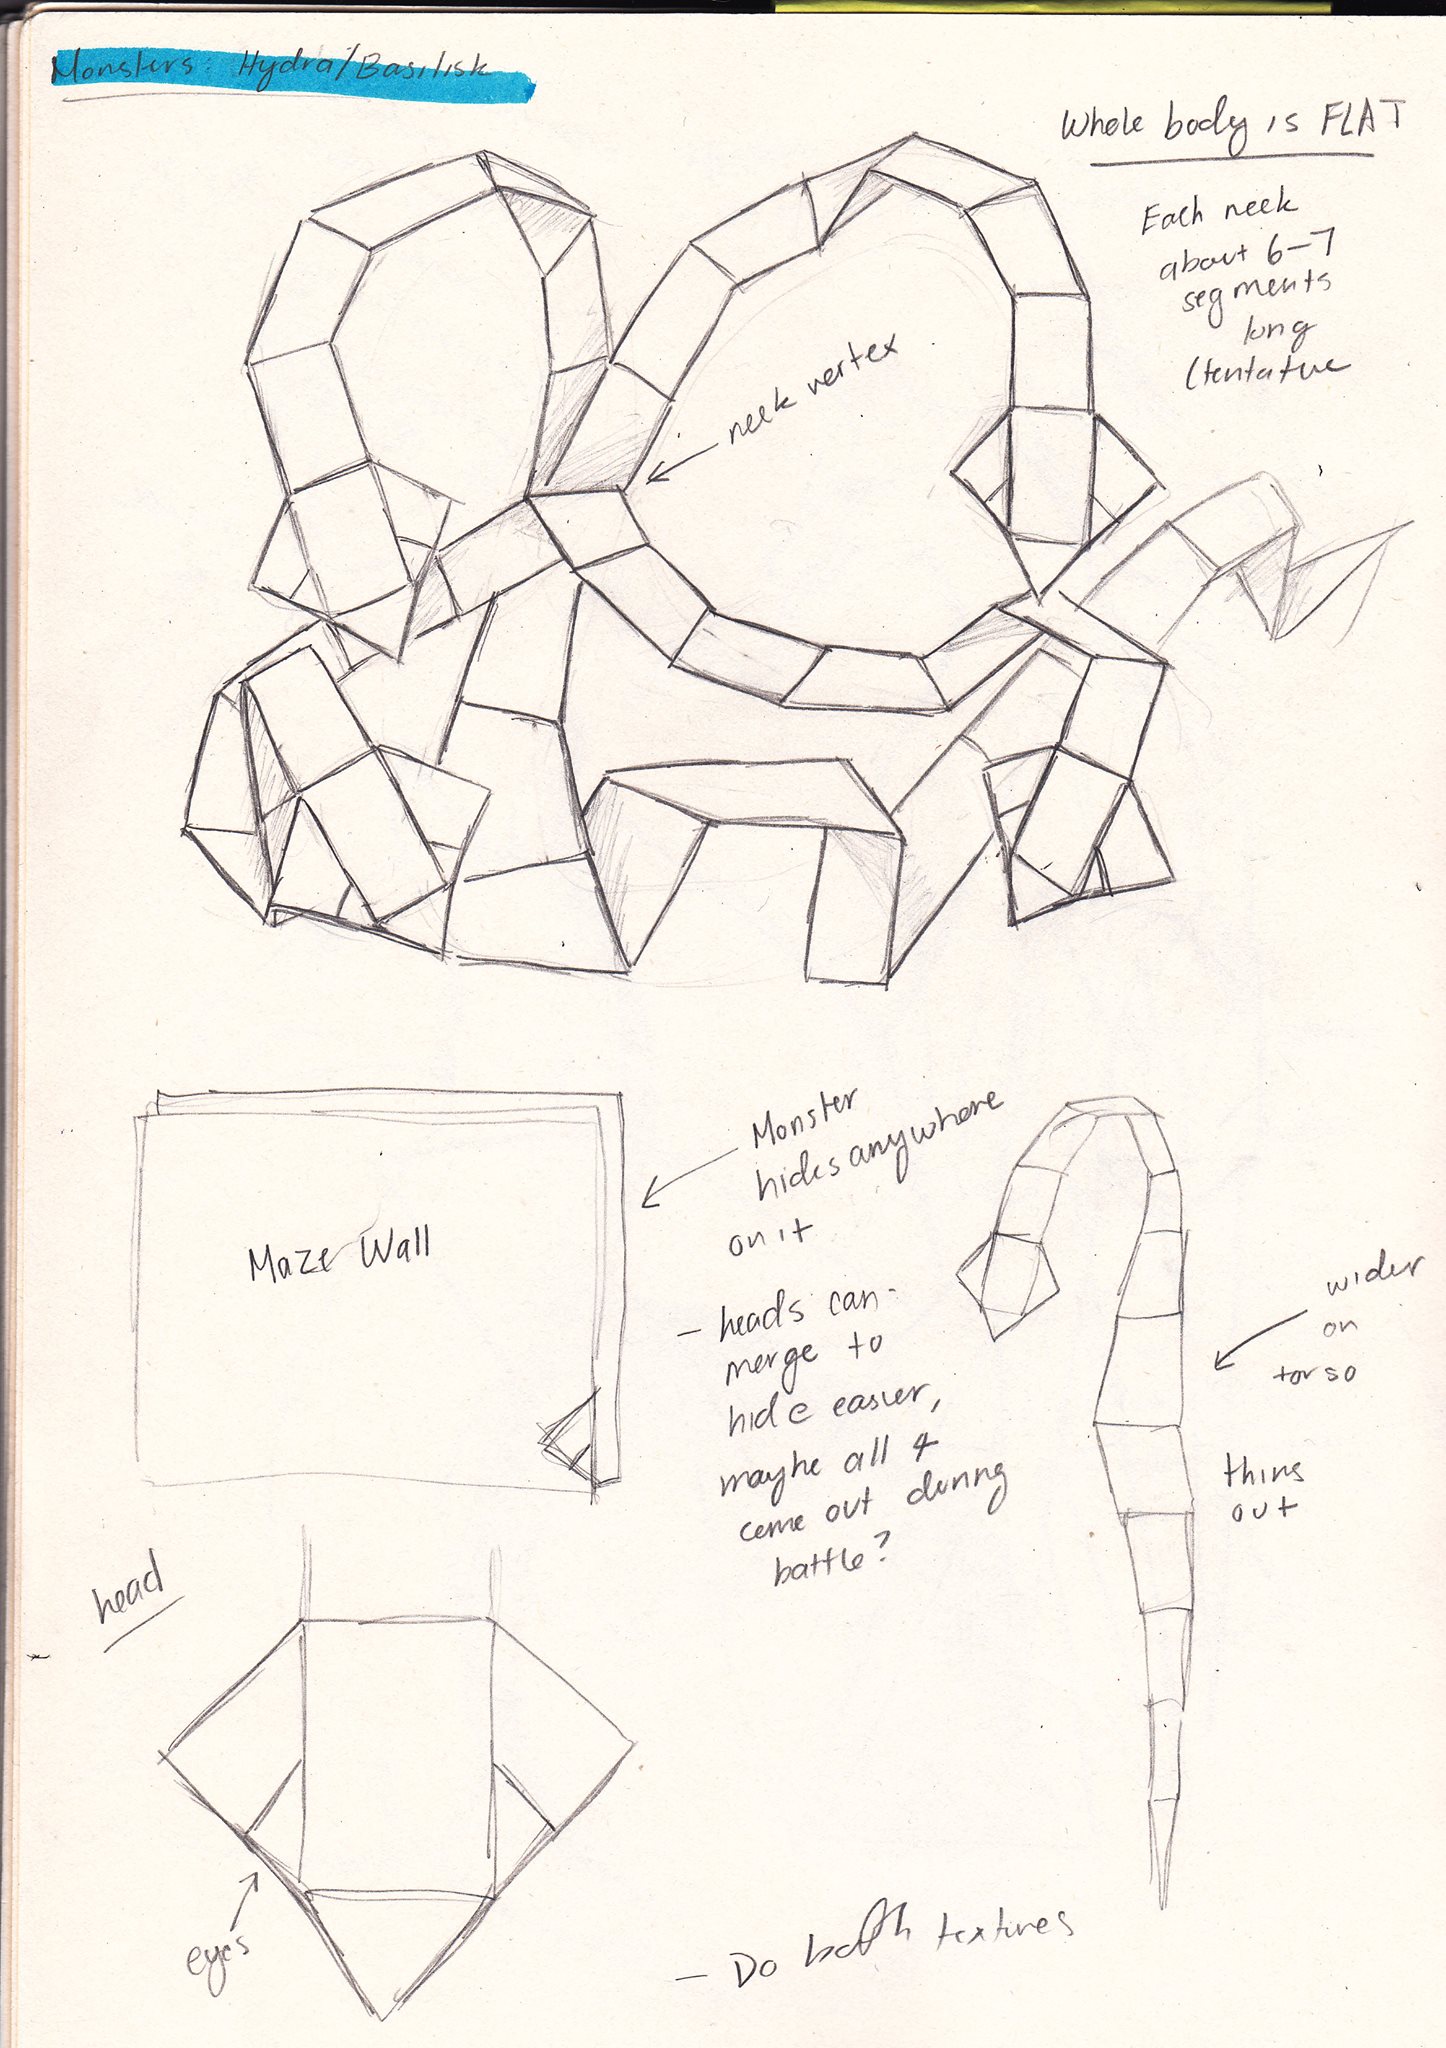 Monsters: Hydra/Basilisk
Whole body is FLAT
Each neck
about 6-7
segments
long
(tentative
neck vertex
Monster
hides anywhere
on it
Maze Wall
- heads can
merge to
hide easier,
maybe all 4
come out during
battle?
wider
on
torso
thins
out
head
eyes
- Do both textures